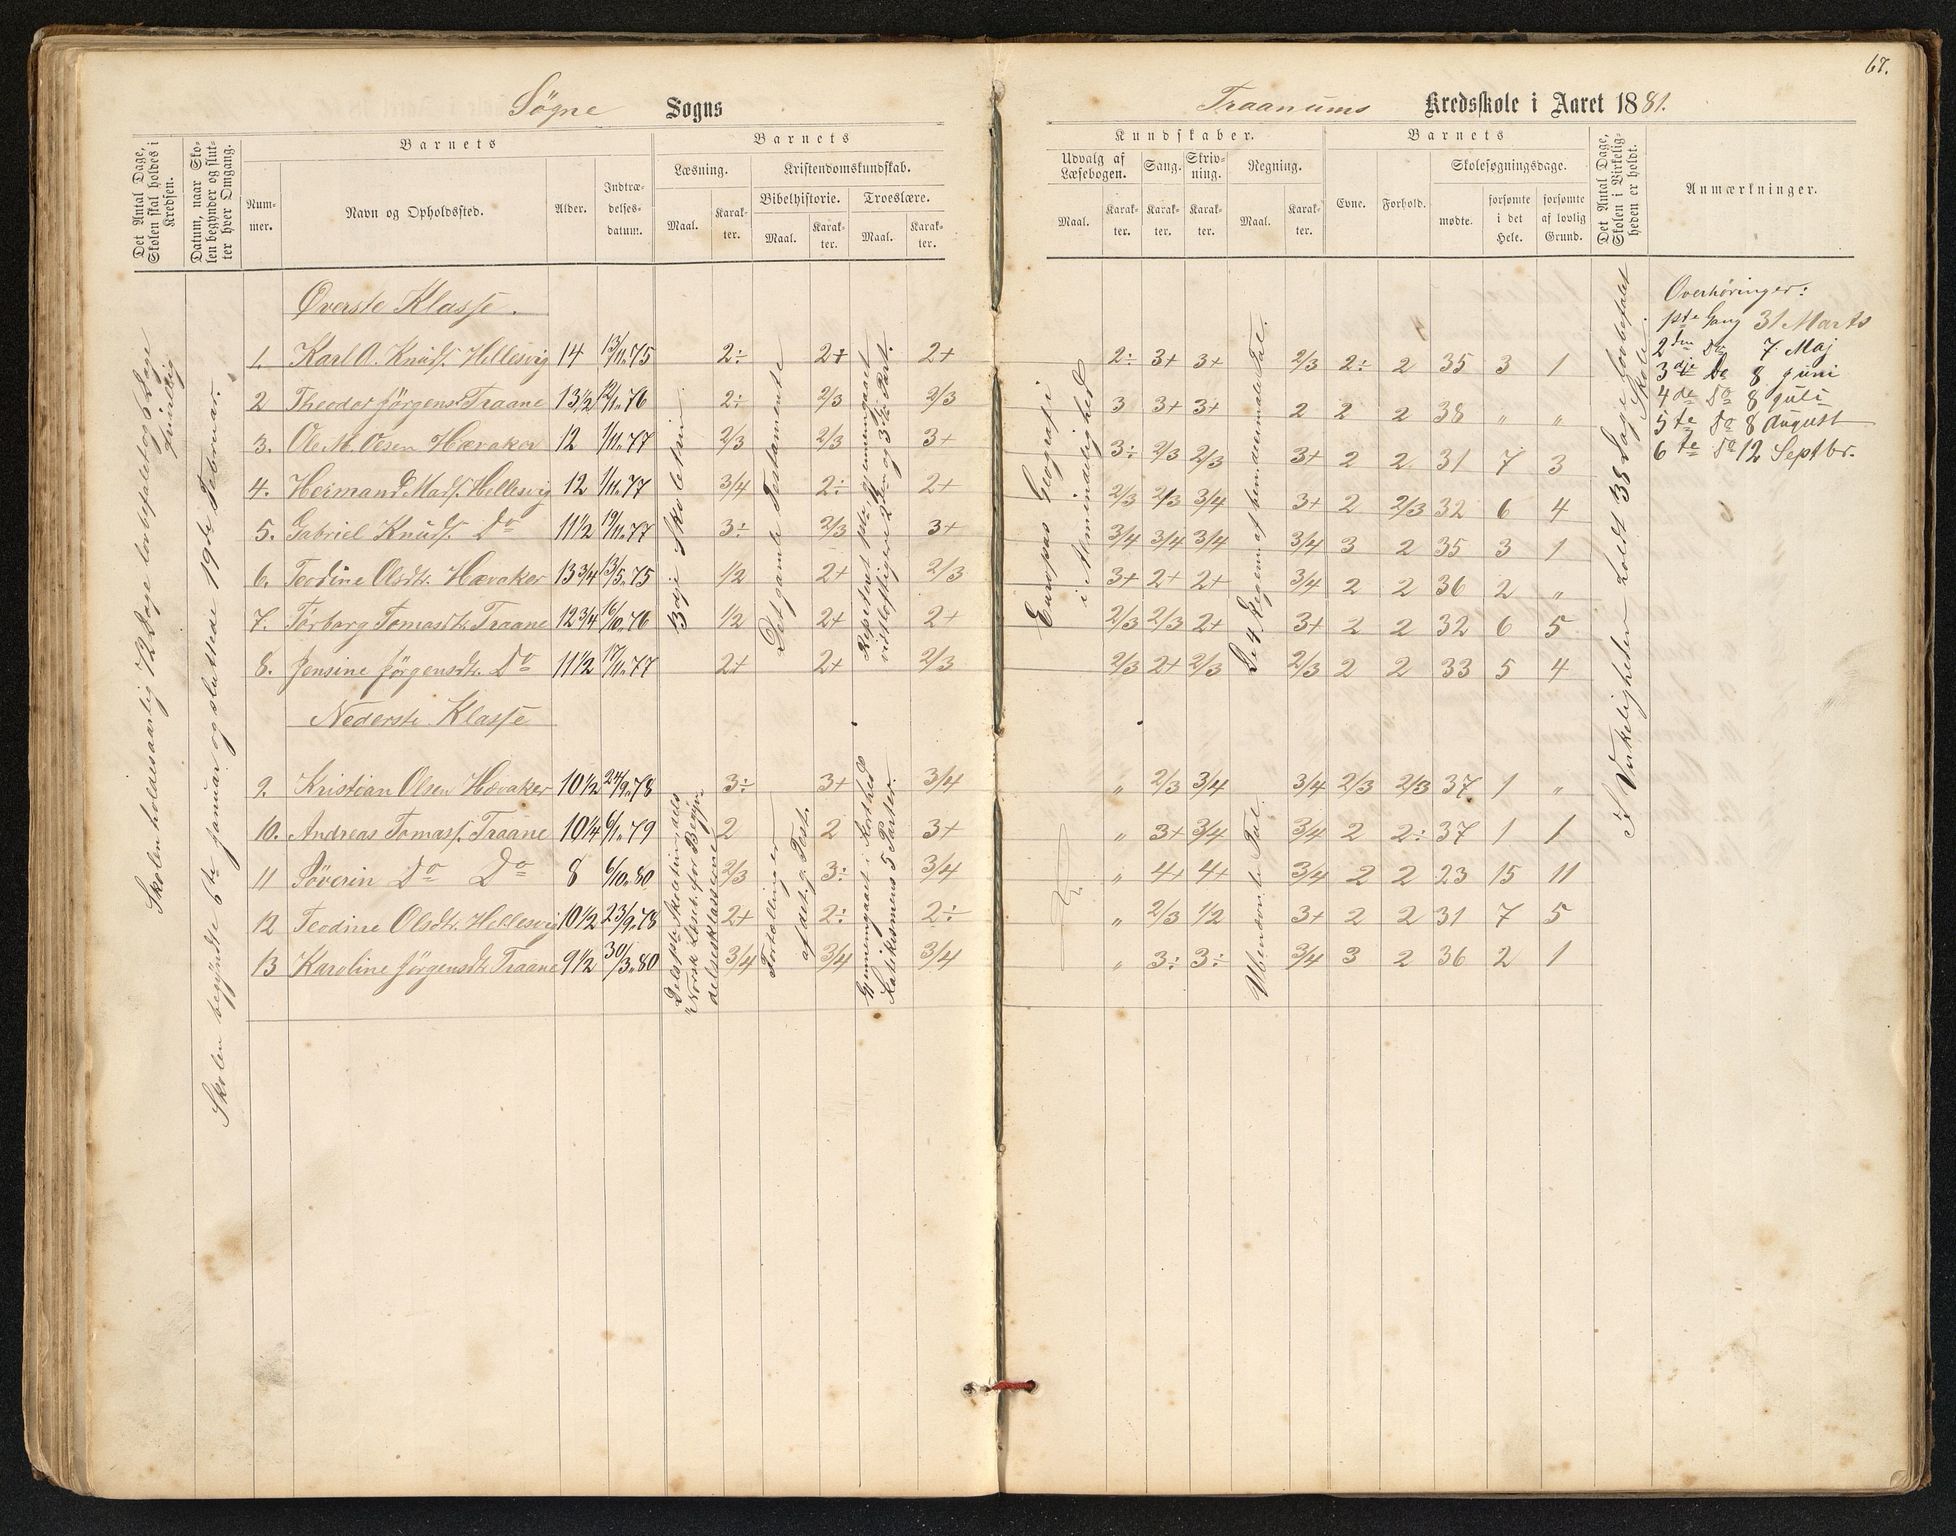 67.
Søgne Sogns
Det Antal Dage, Skolen skal holdes i Kredsen.
Datum, naar Skolen begynder og slutter hver Omgang.
Barnets
Nummer.
Navn og Opholdssted.
Alder.
Indtrædelsesdatum.
Barnets
Læsning.
Maal.
Karakter.
Kristendomskundskab.
Bibelhistorie.
Maal.
Karakter.
Troeslære.
Maal.
Karakter.
Traanums Kredsskole i Aaret 1881.
Kundskaber.
Udvalg af Læsebogen.
Maal.
Karakter.
Sang.
Karakter.
Skrivning.
Karakter.
Regning.
Maal.
Karakter.
Barnets
Evne.
Forhold.
Skolesøgningsdage.
mødte.
forsømte i det Hele.
forsømte af lovlig Grund.
Det Antal Dage, Skolen i Virkeligheden er holdt.
Anmærkninger.
Skolen holdes aarlig 72 Dage lovbefalet og 6 Dage frivillig
Skolen begyndte 6te Januar og sluttede 19de Februar.
Øverste Klasse.
1. Karl A. Knuds. Hellesvig 14 13/11.75 2÷ 2+ 2+ 2÷ 3+ 3+ 2/3 2÷ 2 35 3 1
2 Theodor Jørgens. Traane 13 1/2 12/1.76 2÷ 2/3 2/3 3 3+ 3+ 2 2 2 38 " "
3. Ole M. Olsen Hævaker 12 1/11.77 2/3 2/3 3+ 3÷ 2/3 2/3 3+ 2 2. 31 7 3
4. Herman Mads. Hellesvig 12 1/11.77 3/4 2÷ 2+ 2/3 2/3 3/4 3+ 2 2/3 32 6 4
5. Gabriel Knuds. Do 11 1/2 19/11.77 3÷ 2/3 3+ 3/4 3/4 3/4 3/4 3 2 35 3 1
6. Teodine Olsdtr. Hævaker 13 3/4 13/5.75 1/2 2+ 2/3 3+ 2+ 2+ 3/4 2 2 36 2 "
7. Torborg Tomasdtr. Traane 12 3/4 16/10.76 1/2 2+ 2+ 2/3 2/3 2+ 3+ 2 2 32 6 5
8. Jensine Jørgensdtr. Do 11 1/2 17/11.77 2+ 2+ 2/3 2/3 2+ 2/3 2/3 2 2 33 5 4
3dje Skoletrin
Det gamle Testamente
Repeteret 1ste, gjennemgaaet vidtløftigere 2den og 3die Part.
Europas Geografi i Almindelighed
De 4 Regning. af benævnte Tal.
I Virkeligheden holdt 38 Dage lovbefalet Skole.
Overhøringer:
1ste Gang 31 Marts
2den Do 7. Maj
3dje Do 8 Juni
4de Do 8 Juli
5te Do 8 August
6te Do 12 Septbr.
Nederste Klasse
9. Kristian Olsen Hævaker 10 1/2 24/9.78 3÷ 3+ 3/4 " 2/3 3/4 3/4 2/3 2/3 37 1 "
10. Andreas Tomass. Traane 10 1/4 6/1.79 2 2 3+ " 3+ 3/4 3/4 2 2÷ 37 1 1
11 Søverin Do Do 8 6/10.80 2/3 3÷ 3/4 " 4+ 4+ 3/4 2 2 23 15 11
12 Teodine Olsdtr. Hellesvig 10 1/2 23/9.78 2+ 2÷ 2÷ " 2/3 1/2 3+ 2 2 31 7 5
13 Karoline Jørgensdtr. Traane 9 1/2 30/3.80 3/4 3/4 3/4 " 3÷ 3÷ 3/4 3 2 36 2 1
Dels 1ste Skoletrin, dels Norsk Læseb. for Begyndelsesklasserne
Fortællinger af det g. Test.
Gjennemgaaet i Korthed Katekismens 5 Parter.
Ubenævnte Tal